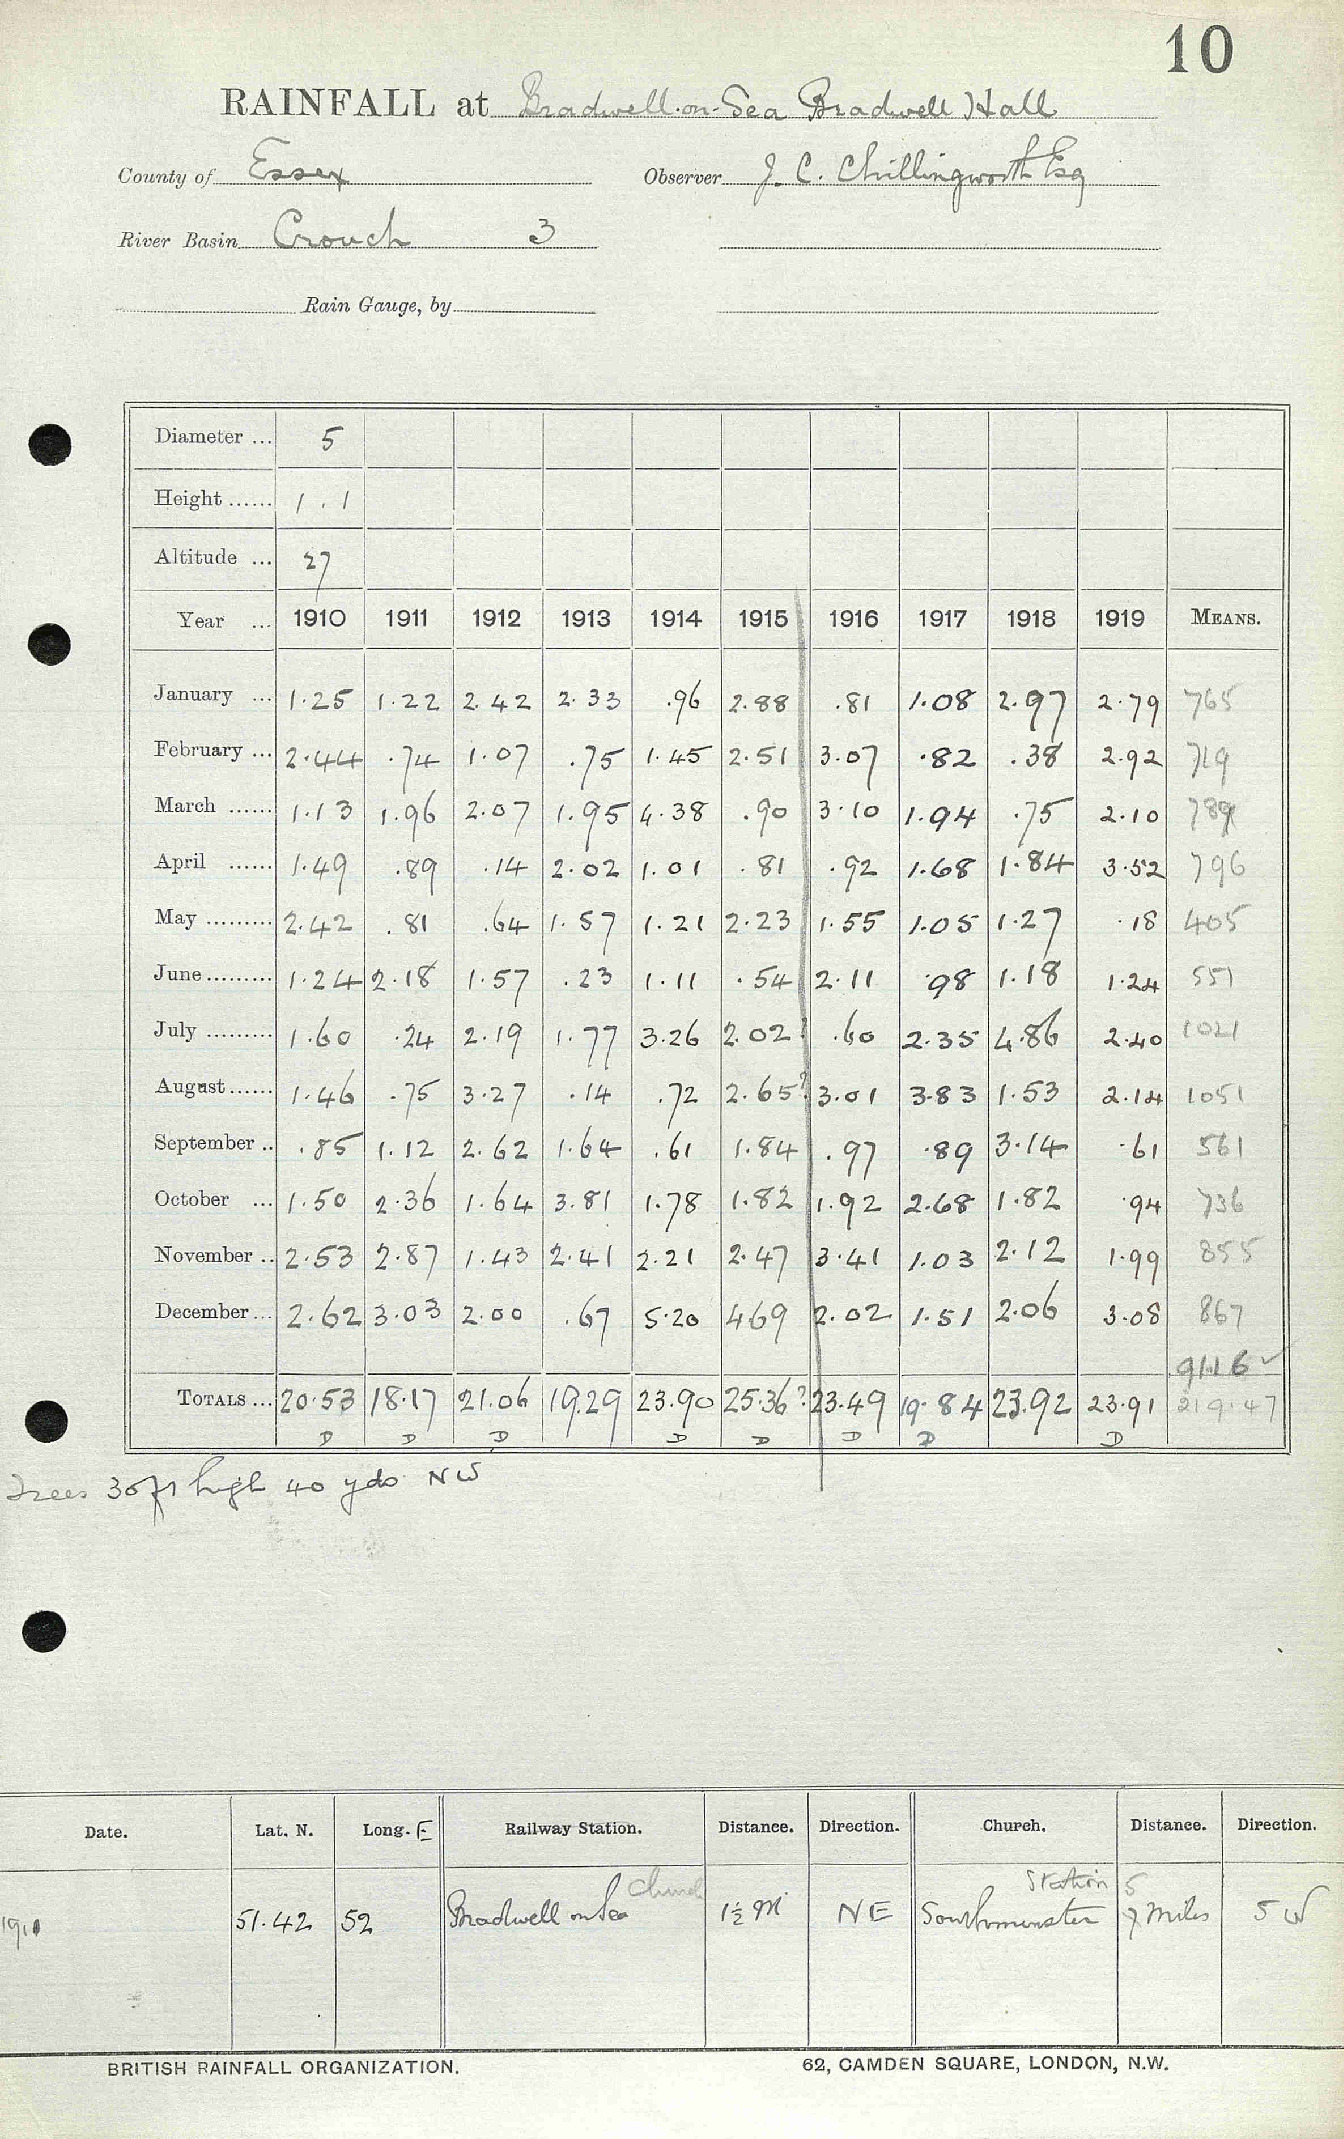 10
RAINFALL at Bradwell-on-Sea Bradwell Hall
County of Essex Observer J. C. Chillingworth Esq
River Basin Crouch 3
Rain Gauge, by
Diameter ... 5
Height ...... 1 . 1
Altitude ... 27
Year ... 1910 1911 1912 1913 1914 1915 1916 1917 1918 1919 MEANS.
January ... 1.25 1.22 2.42 2.33 .96 2.88 .81 1.08 2.97 2.79 765
February ... 2.44 .74 1.07 .75 1.45 2.51 3.07 .82 .38 2.92 719
March ...... 1.13 1.96 2.07 1.95 4.38 .90 3.10 1.94 .75 2.10 789
April ...... 1.49 .89 .14 2.02 1.01 .81 .92 1.68 1.84 3.52 796
May ......... 2.42 .81 .64 1.57 1.21 2.23 1.55 1.05 1.27 .18 405
June ......... 1.24 2.18 1.57 .23 1.11 .54 2.11 .98 1.18 1.24 551
July ......... 1.60 .24 2.19 1.77 3.26 2.02? .60 2.35 4.86 2.40 1021
August ...... 1.46 .75 3.27 .14 .72 2.65? 3.01 3.83 1.53 2.14 1051
September .. .85 1.12 2.62 1.64 .61 1.84 .97 .89 3.14 .61 561
October ... 1.50 2.36 1.64 3.81 1.78 1.82 1.92 2.68 1.82 .94 736
November .. 2.53 2.87 1.43 2.41 2.21 2.47 3.41 1.03 2.12 1.99 855
December ... 2.62 3.03 2.00 .67 5.20 469 2.02 1.51 2.06 3.08 867
9116 ✓
TOTALS ... 20.53 18.17 21.06 19.29 23.90 25.36? 23.49 19.84 23.92 23.91 219.47
D D D D D D D D
Trees 30ft high 40 yds NW
Date. Lat. N. Long. E Railway Station. Distance. Direction. Church. Distance. Direction.
Church Station 5
1910 51.42 52 Bradwell on Sea 1½ M NE Southminster 7 Miles SW
BRITISH RAINFALL ORGANIZATION. 62, CAMDEN SQUARE, LONDON, N.W.